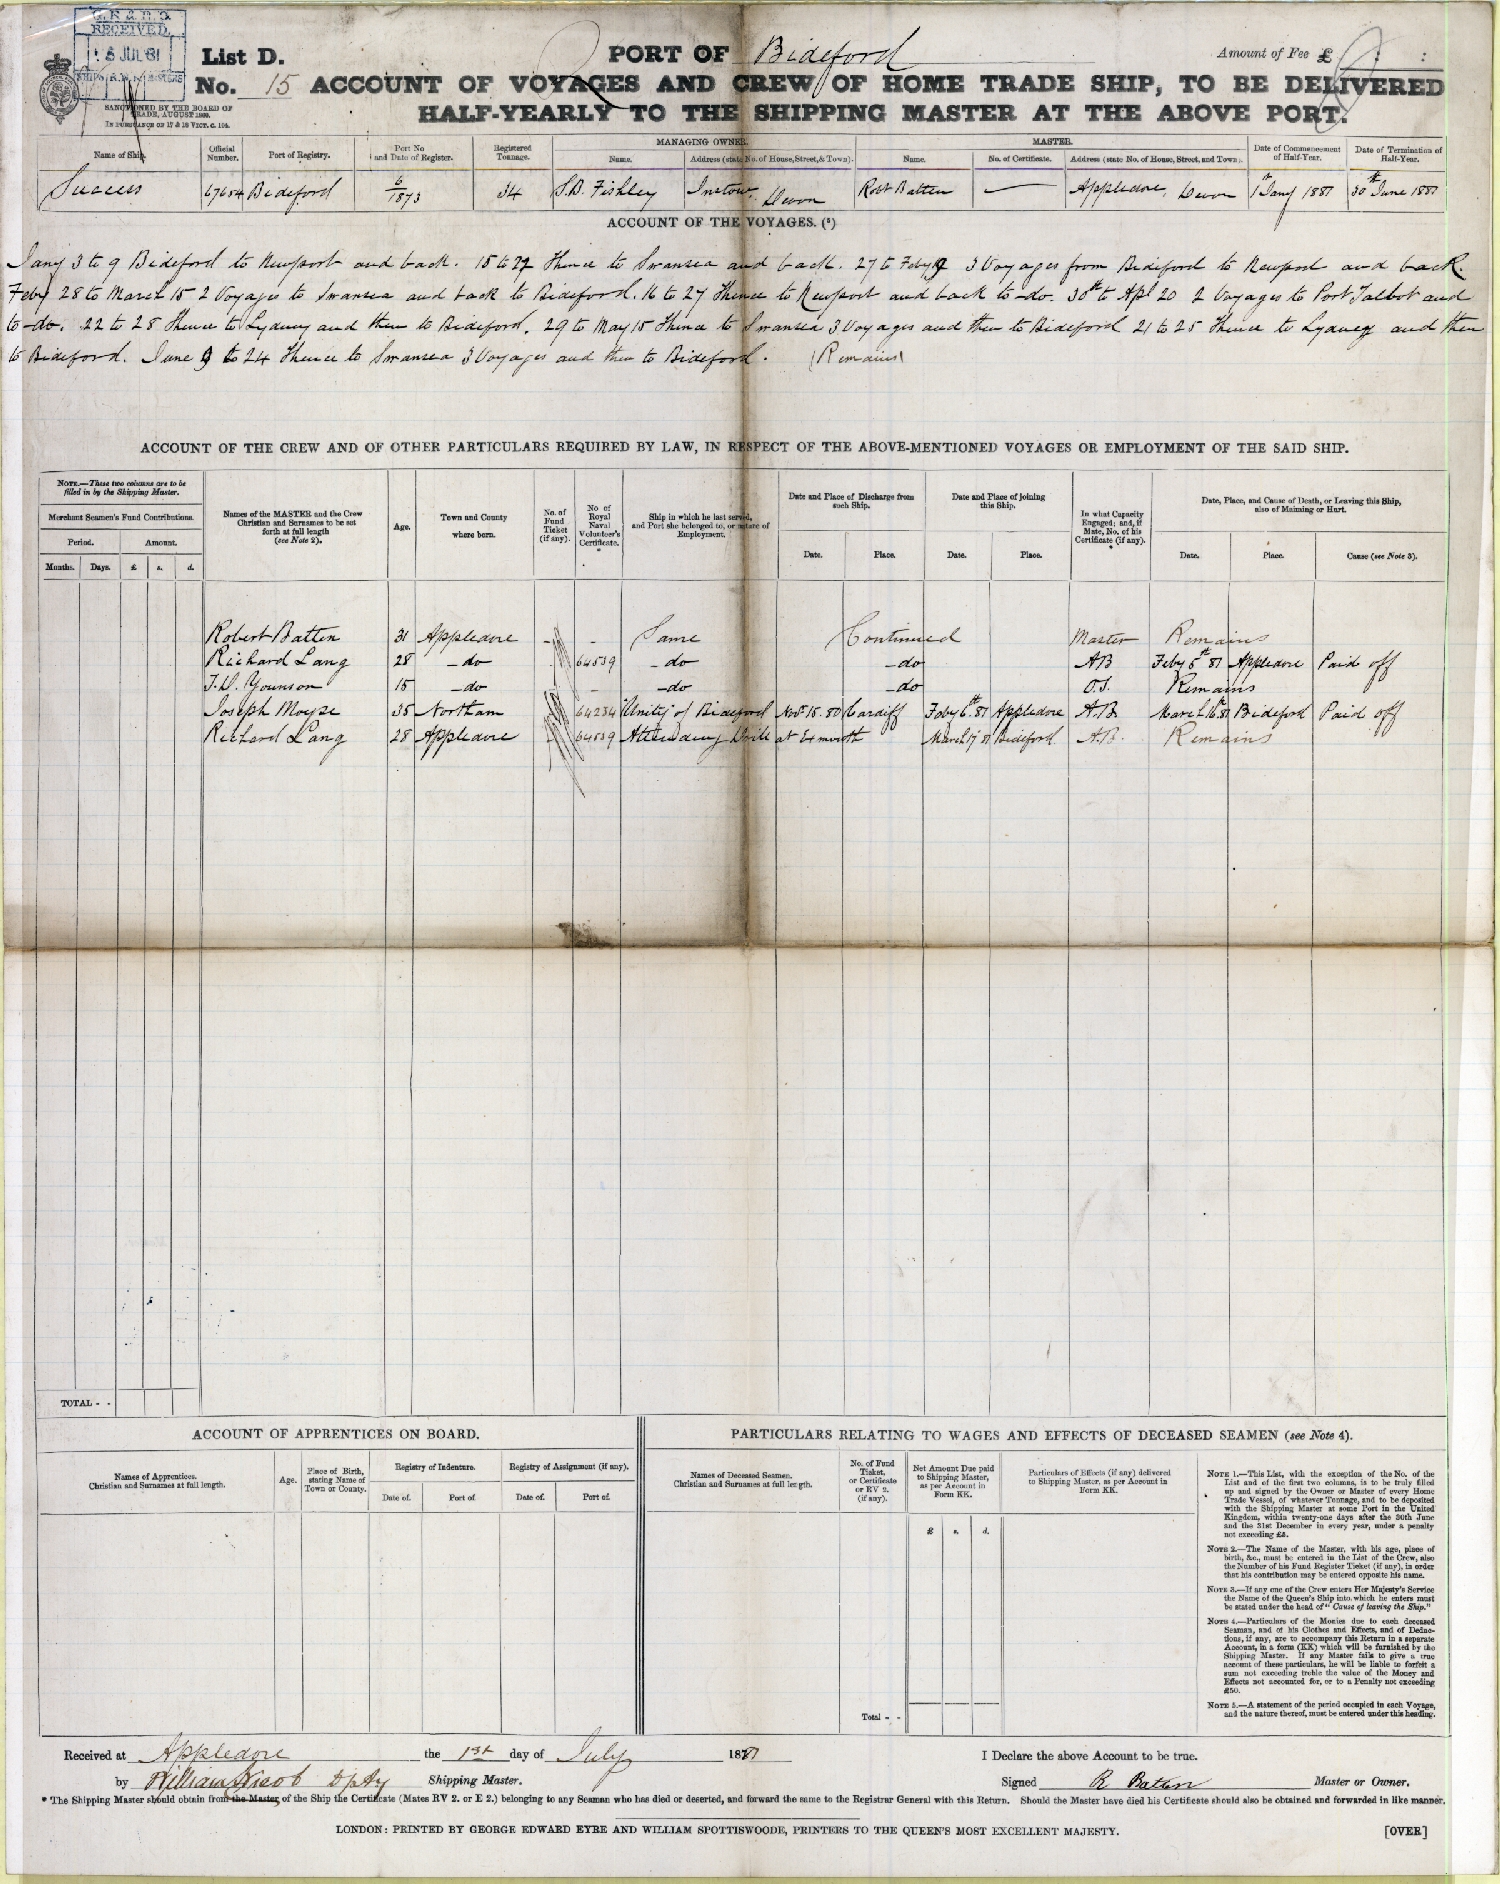 RECEIVED.
JUL 81
List D.
PORT OF Bideford
Amount of Fee £ : :
No. 15 ACCOUNT OF VOYAGES AND CREW OF HOME TRADE SHIP, TO BE DELIVERED
HALF-YEARLY TO THE SHIPPING MASTER AT THE ABOVE PORT.
SANCTIONED BY THE BOARD OF
TRADE, AUGUST
IN PURSUANCE OF 17 & 18 VICT. C. 104.
MANAGING OWNER. MASTER.
Name of Ship. Official Number. Port of Registry. Port No and Date of Register. Registered Tonnage. Name. Address (state No. of House, Street, & Town). Name. No. of Certificate. Address (state No. of House, Street, and Town). Date of Commencement of Half-Year. Date of Termination of Half-Year.
Success 67654 Bideford 6/1873 34 S.B. Fishley Instow, Devon Robt Batten — Appledore, Devon 1st Jany 1881 30th June 1881
ACCOUNT OF THE VOYAGES. (5)
Jany 3 to 9 Bideford to Newport and back. 15 to 22 Thence to Swansea and back. 27 to Feby 3 Voyages from Bideford to Newport and back.
Feby 28 to March 15 2 Voyages to Swansea and back to Bideford. 16 to 27 Thence to Newport and back to -do. 30th to Apl 20 2 Voyages to Port Talbot and
to -do. 22 to 28 Thence to Lydney and then to Bideford. 29 to May 15 Thence to Swansea 3 Voyages and then to Bideford 21 to 25 Thence to Lydney and then
to Bideford. June 9 to 24 Thence to Swansea 3 Voyages and then to Bideford. (Remains)
ACCOUNT OF THE CREW AND OF OTHER PARTICULARS REQUIRED BY LAW, IN RESPECT OF THE ABOVE-MENTIONED VOYAGES OR EMPLOYMENT OF THE SAID SHIP.
NOTE.—These two columns are to be
filled in by the Shipping Master.
Merchant Seamen's Fund Contributions.
Period. Amount.
Months. Days. £ s. d.
Names of the MASTER and the Crew
Christian and Surnames to be set
forth at full length
(see Note 2).
Age.
Town and County
where born.
No. of
Fund
Ticket
(if any).
No of
Royal
Naval
Volunteer's
Certificate.
*
Ship in which he last served,
and Port she belonged to, or nature of
Employment.
Date and Place of Discharge from
such Ship.
Date. Place.
Date and Place of joining
this Ship.
Date. Place.
In what Capacity
Engaged; and, if
Mate, No. of his
Certificate (if any).
*
Date, Place, and Cause of Death, or Leaving this Ship,
also of Maiming or Hurt.
Date. Place. Cause (see Note 3).
Robert Batten 31 Appledore - - Same Continued Master Remains
Richard Lang 28 -do 64539 -do -do AB Feby 5th 81 Appledore Paid off
Younson 15 -do - -do -do O.S. Remains
Joseph Moyse 35 Northam 64234 "Unity" of Bideford Novr 15. 80 Cardiff Feby 6th 81 Appledore A.B. March 16 81 Bideford Paid off
Richard Lang 28 Appledore 64539 Attending Drill at Exmouth March 17 81 Bideford A.B. Remains
TOTAL - -
ACCOUNT OF APPRENTICES ON BOARD.
Names of Apprentices.
Christian and Surnames at full length.
Age.
Place of Birth,
stating Name of
Town or County.
Registry of Indenture.
Date of. Port of.
Registry of Assignment (if any).
Date of. Port of.
PARTICULARS RELATING TO WAGES AND EFFECTS OF DECEASED SEAMEN (see Note 4).
Names of Deceased Seamen.
Christian and Surnames at full length.
No. of Fund
Ticket,
or Certificate
or RV 2.
(if any).
Net Amount Due paid
to Shipping Master,
as per Account in
Form KK.
£ s. d.
Particulars of Effects (if any) delivered
to Shipping Master, as per Account in
Form KK.
Total - -
NOTE 1.—This List, with the exception of the No. of the
List and of the first two columns, is to be truly filled
up and signed by the Owner or Master of every Home
Trade Vessel, of whatever Tonnage, and to be deposited
with the Shipping Master at some Port in the United
Kingdom, within twenty-one days after the 30th June
and the 31st December in every year, under a penalty
not exceeding £5.
NOTE 2.—The Name of the Master, with his age, place of
birth, &c., must be entered in the List of the Crew, also
the Number of his Fund Register Ticket (if any), in order
that his contribution may be entered opposite his name.
NOTE 3.—If any one of the Crew enters Her Majesty's Service
the Name of the Queen's Ship into which he enters must
be stated under the head of "Cause of leaving the Ship."
NOTE 4.—Particulars of the Monies due to each deceased
Seaman, and of his Clothes and Effects, and of Deduc-
tions, if any, are to accompany this Return in a separate
Account, in a form (KK) which will be furnished by the
Shipping Master. If any Master fails to give a true
account of these particulars, he will be liable to forfeit a
sum not exceeding treble the value of the Money and
Effects not accounted for, or to a Penalty not exceeding
£50.
NOTE 5.—A statement of the period occupied in each Voyage,
and the nature thereof, must be entered under this heading.
Received at Appledore the 1st day of July 1881
I Declare the above Account to be true.
by William Dpty Shipping Master.
Signed R Batten Master or Owner.
* The Shipping Master should obtain from the Master of the Ship the Certificate (Mates RV 2. or E 2.) belonging to any Seaman who has died or deserted, and forward the same to the Registrar General with this Return. Should the Master have died his Certificate should also be obtained and forwarded in like manner.
LONDON: PRINTED BY GEORGE EDWARD EYRE AND WILLIAM SPOTTISWOODE, PRINTERS TO THE QUEEN'S MOST EXCELLENT MAJESTY.
[OVER]